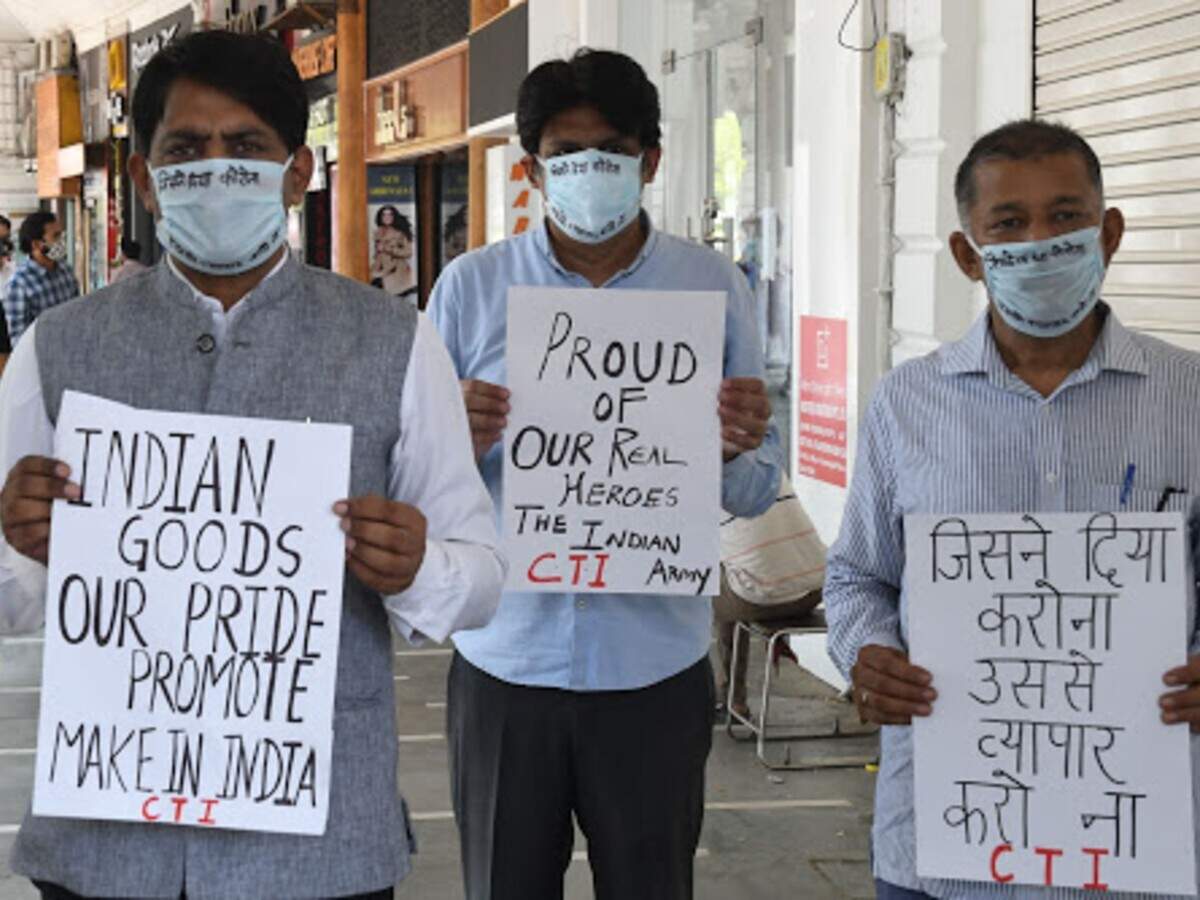 INDIAN
GOODS
OUR PRIDE
PROMOTE
MAKE IN INDIA
CTI
PROUD
OF
OUR REAL
HEROES
THE INDIAN
CTI ARMY
जिसने दिया
करोना
उससे
व्यापार
करो ना
CTI